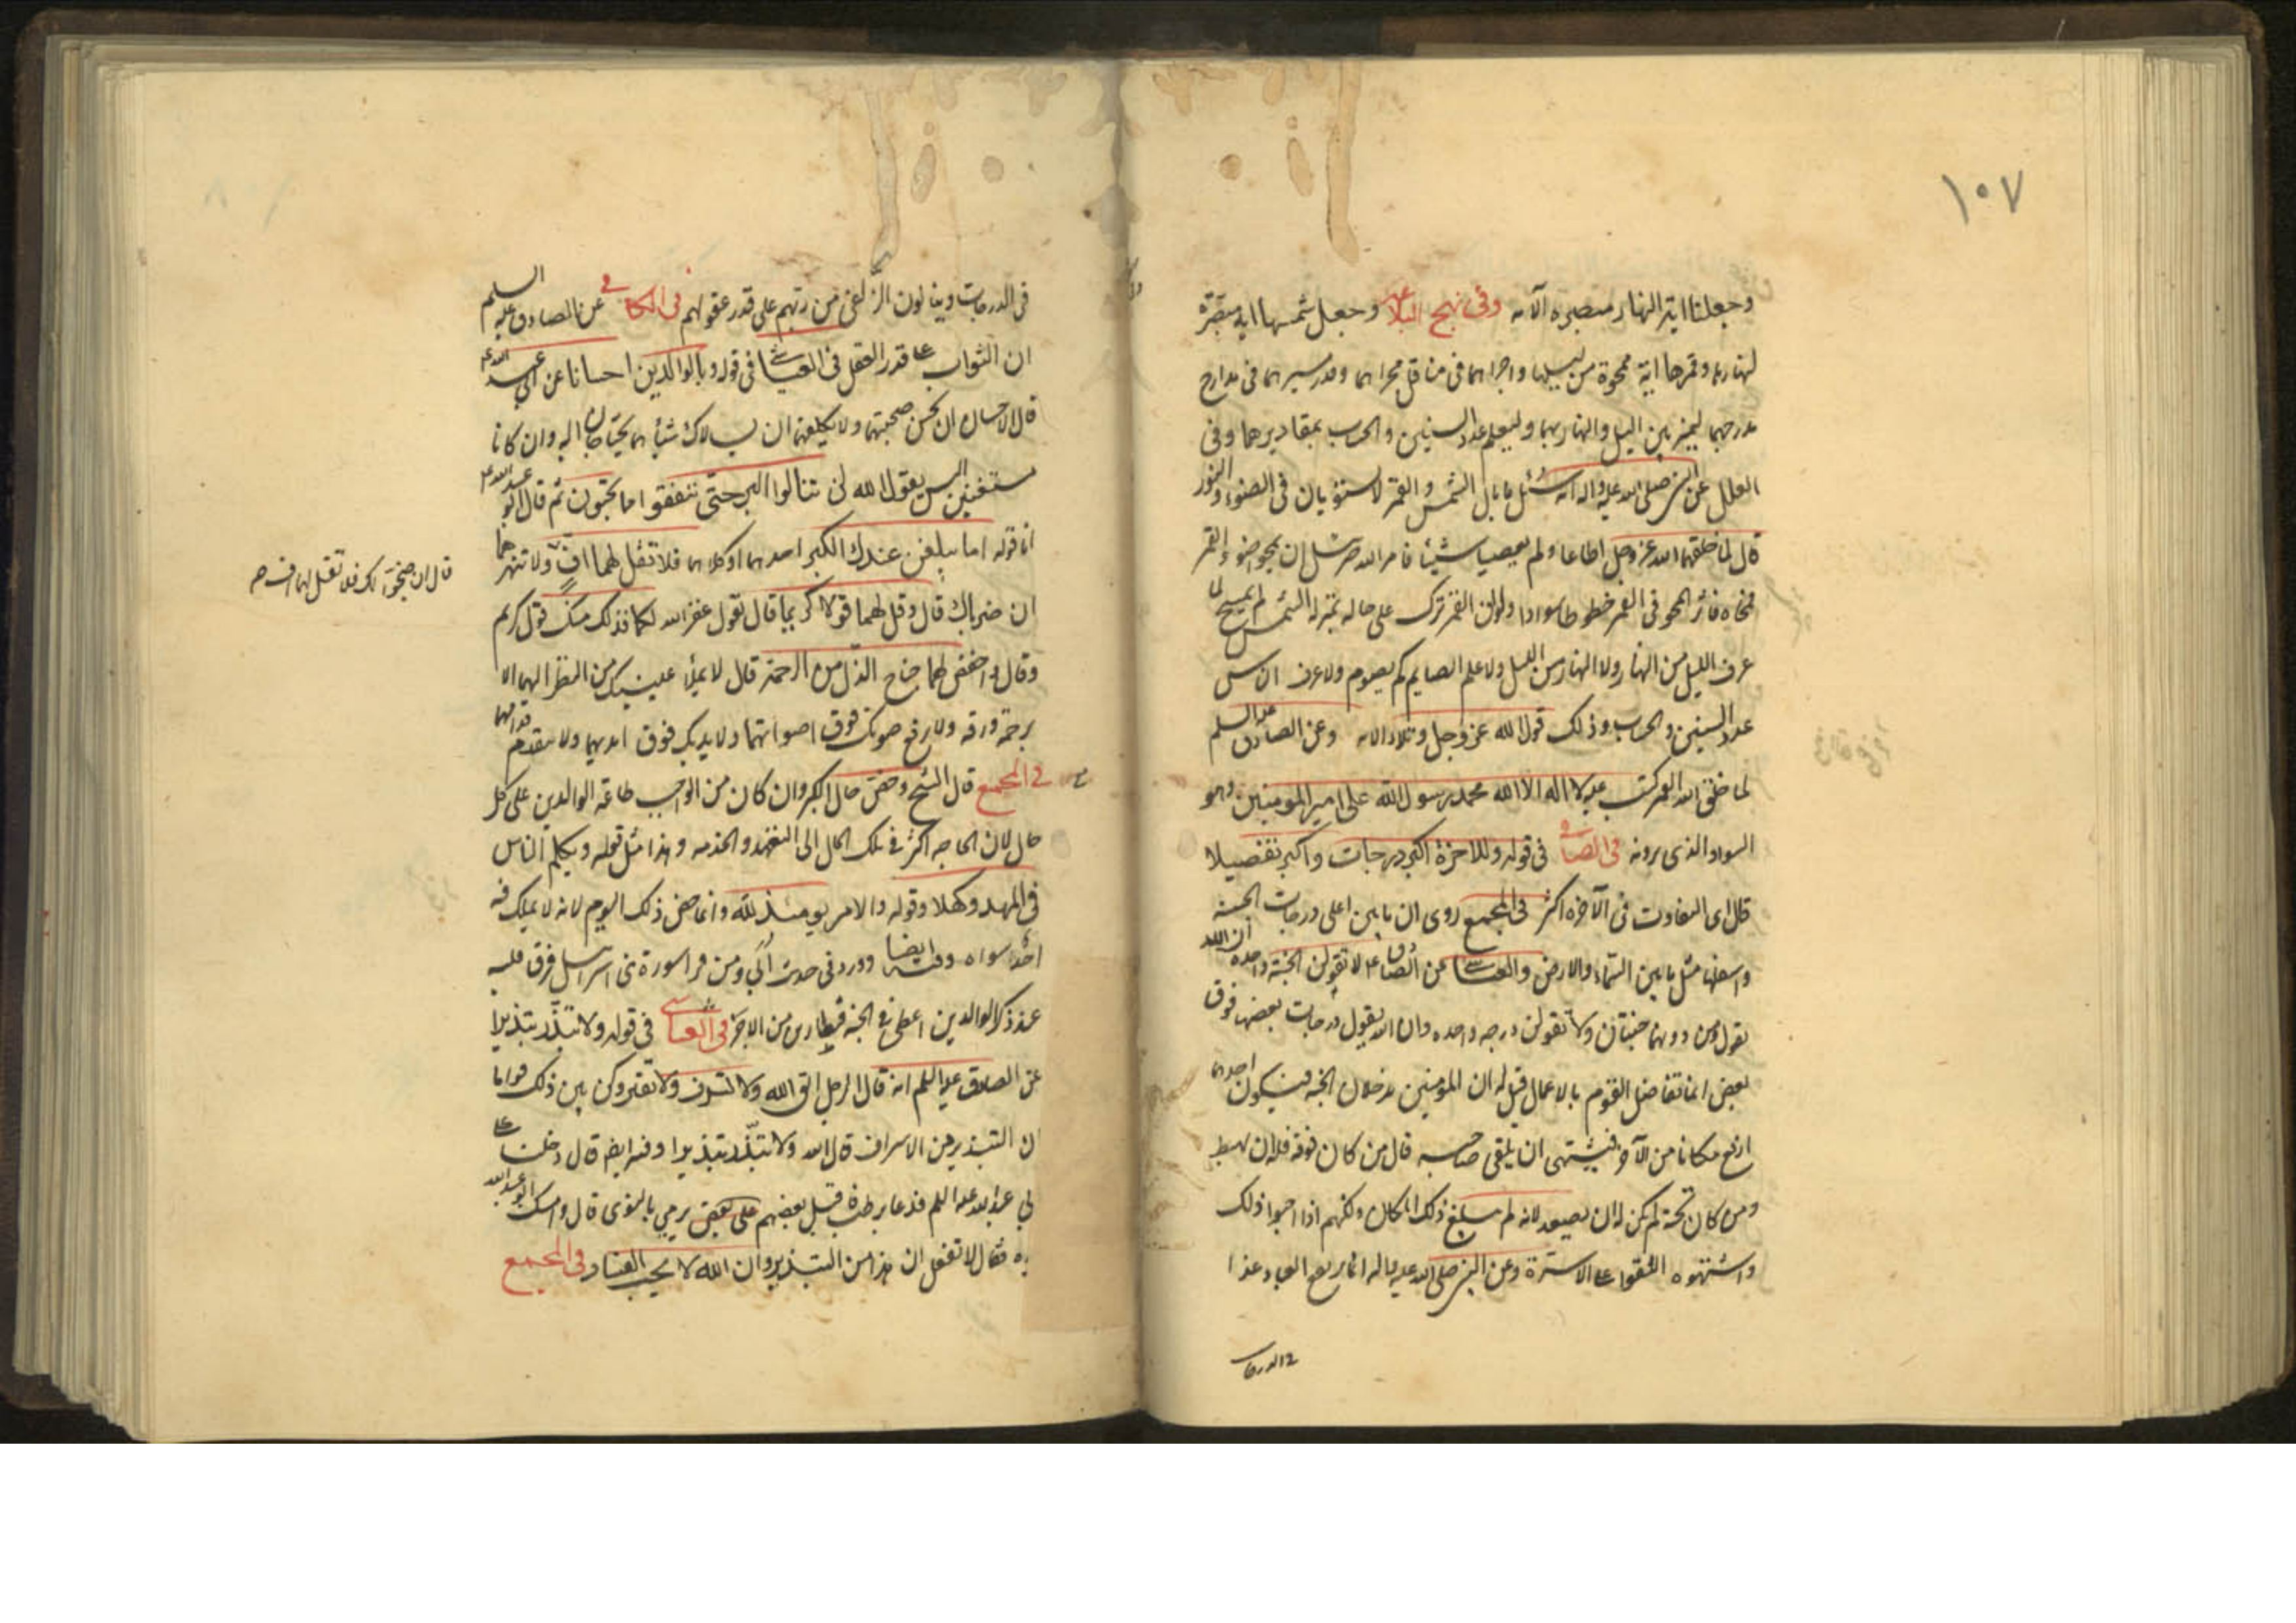 ١٠٧
وجعلنا اية النهار مبصره الآيه وفى نهج البلاغه وجعل شمسها اية مبصرة
لنهارها وقمرها اية ممحوة من ليلها واجراهما فى مناقل مجراهما وقدر سيرهما فى مدارج
مدرجهما ليميز بين الليل والنهار بهما وليعلم عدد السنين والحساب بمقاديرهما وفى
العلل عن النبى صلى الله عليه واله انه سُئل ما بال الشمس والقمر لا يستويان فى الضوء والنور
قال لما خلقهما الله عز وجل اطاعا ولم يعصيا شيئا فامر الله جبرئيل ان يمحو ضوء القمر
فمحاه فاثر المحو فى القمر خطوطا سوادا ولو ان القمر ترك على حاله بمنزله الشمس لم يمح لما
عرف الليل من النهار ولا النهار من الليل ولا علم الصايم كم يصوم ولا عرف الناس
عدد السنين والحساب وذلك قول الله عز وجل وتلا الايه وعن الصادق عليه السلم
لما خلق الله القمر كتب عليه لا اله الا الله محمد رسول الله على امير المومنين وهو
السواد الذى يرونه فى الصافى فى قوله وللاخرة اكبر درجات واكبر تفضيلا
قال اى التفاوت فى الآخره اكثر فى المجمع روى ان ما بين اعلى درجات الجنة
واسفلها مثل ما بين السماء والارض والعياشى عن الصادق ع لا تقولن الجنة واحده ان الله
يقول ومن دونهما جنتان ولا تقولن درجه واحده وان الله يقول درجات بعضها فوق
بعض انما تفاضل القوم بالاعمال قيل له ان المؤمنين يدخلان الجنه فيكون احدهما
ارفع مكانا من الآخر فيشتهى ان يلقى صاحبه قال من كان فوقه فله ان يهبط
ومن كان تحته لم يكن له ان يصعد لانه لم يبلغ ذلك المكان ولكنهم اذا احبوا ذلك
واشتهوه التقوا على الاسرة وعن النبى صلى الله عليه واله انما يرتفع العباد غدا
فى الدرجات
فى الدرجات وينالون الزلفى من ربهم على قدر عقولهم فى الكافى عن الصادق عليه السلم
ان الثواب على قدر العقل فى العياشى فى قوله وبالوالدين احسانا عن ابى عبد الله ع
قال الاحسان ان تحسن صحبتهما ولا تكلفهما ان يسالاك شيئا هما يحتاجان اليه وان كانا
مستغنين اليس يقول الله لن تنالوا البر حتى تنفقوا مما تحبون ثم قال ابو عبد الله ع
اما قوله اما يبلغن عندك الكبر احدهما او كلاهما فلا تقل لهما افّ ولا تنهرهما
قال ان ضجراك فلا تقل لهما اف صح
ان ضرباك قال وقل لهما قولا كريما قال تقول غفر الله لكما فذلك منك قول كريم
وقال واخفض لهما جناح الذل من الرحمة قال لا تملأ عينيك من النظر اليهما الا
برحمة ورقه ولا ترفع صوتك فوق اصواتهما ولا يديك فوق ايديهما ولا تتقدم قدامهما
فى المجمع قال الشيخ وخص حال الكبر وان كان من الواجب طاعة الوالدين على كل
حال لان الحاجه اكثر فى تلك الحال الى التعهد والخدمه وهذا مثل قوله ويكلم الناس
فى المهد وكهلا وقوله والامر يومئذ لله وانما خص ذلك اليوم لانه لا يملك فيه
احد سواه وفيه ايضا وورد فى حديث اُبَى ومن قرا سورة بنى اسرائيل فرق قلبه
عند ذكر الوالدين اعطى فى الجنة قنطارين من الاجر فى العياشى فى قوله ولا تبذر تبذيرا
عن الصادق عليه السلم انه قال لرجل اتق الله ولا تسرف ولا تقتر وكن بين ذلك قواما
ان التبذير من الاسراف قال الله ولا تبذر تبذيرا وفيه ايضا قال دخلت على
ابى عبد الله عليه السلم فدعا برطب فقبل بعضهم على بعض يرمى بالنوى قال وامسك ابو عبد الله
يده فقال لا تفعل ان هذا من التبذير وان الله لا يحب الفساد وفى المجمع